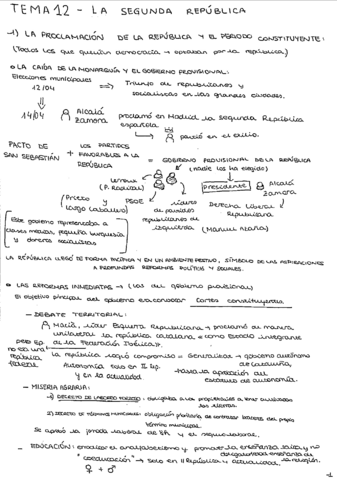 TEMA 12 - LA SEGUNDA REPÚBLICA
-1) LA PROCLAMACIÓN DE LA REPÚBLICA Y EL PERIODO CONSTITUYENTE:
(Todos los que querían democracia → optaban por la república)
LA CAÍDA DE LA MONARQUÍA Y EL GOBIERNO PROVISIONAL:
Elecciones municipales 12/04 ⇒ Triunfo de republicanos y socialistas en las grandes ciudades.
14/04 Alcalá Zamora proclamó en Madrid la Segunda República española
→ partió en el exilio.
PACTO DE SAN SEBASTIÁN + LOS PARTIDOS FAVORABLES A LA REPÚBLICA = GOBIERNO PROVISIONAL DE LA REPÚBLICA
(nadie los ha elegido)
Lerroux (P. Radical)
presidente Alcalá Zamora
Derecha Liberal Republicana
(Prieto y Largo Caballero) PSOE
líderes de partidos republicanos de izquierda (Manuel Azaña)
Este gobierno representaba a clases medias, pequeña burguesía y obreros socialistas
LA REPÚBLICA LLEGÓ DE FORMA PACÍFICA Y EN UN AMBIENTE FESTIVO, SÍMBOLO DE LAS ASPIRACIONES A PROFUNDAS REFORMAS POLÍTICAS Y SOCIALES.
LAS REFORMAS INMEDIATAS → (las del gobierno provisional)
El objetivo principal del gobierno era convocar Cortes constituyentes
- DEBATE TERRITORIAL:
Macià, líder Esquerra Republicana → proclamó de manera unilateral la república catalana "como Estado integrante de la Federación Ibérica".
pero Esp no era una república federal
La república llegó compromiso = Generalitat → gobierno autónomo de Cataluña,
Autonomía solo en II Rep. y en la actualidad
hasta la aprobación del estatuto de autonomía.
- MISERIA AGRARIA:
1) DECRETO DE LABOREO FORZOSO: obligaba a los propietarios a tener cultivadas las tierras.
2) DECRETO DE TÉRMINOS MUNICIPALES: obligación prioritaria de contratar braceros del propio término municipal.
Se aprobó la jornada laboral de 8h y el
- EDUCACIÓN: erradicar el analfabetismo y promover la enseñanza laica y no obligatoriedad enseñanza de la religión.
"coeducación" → solo en II República y actualidad
♀ + ♂
1